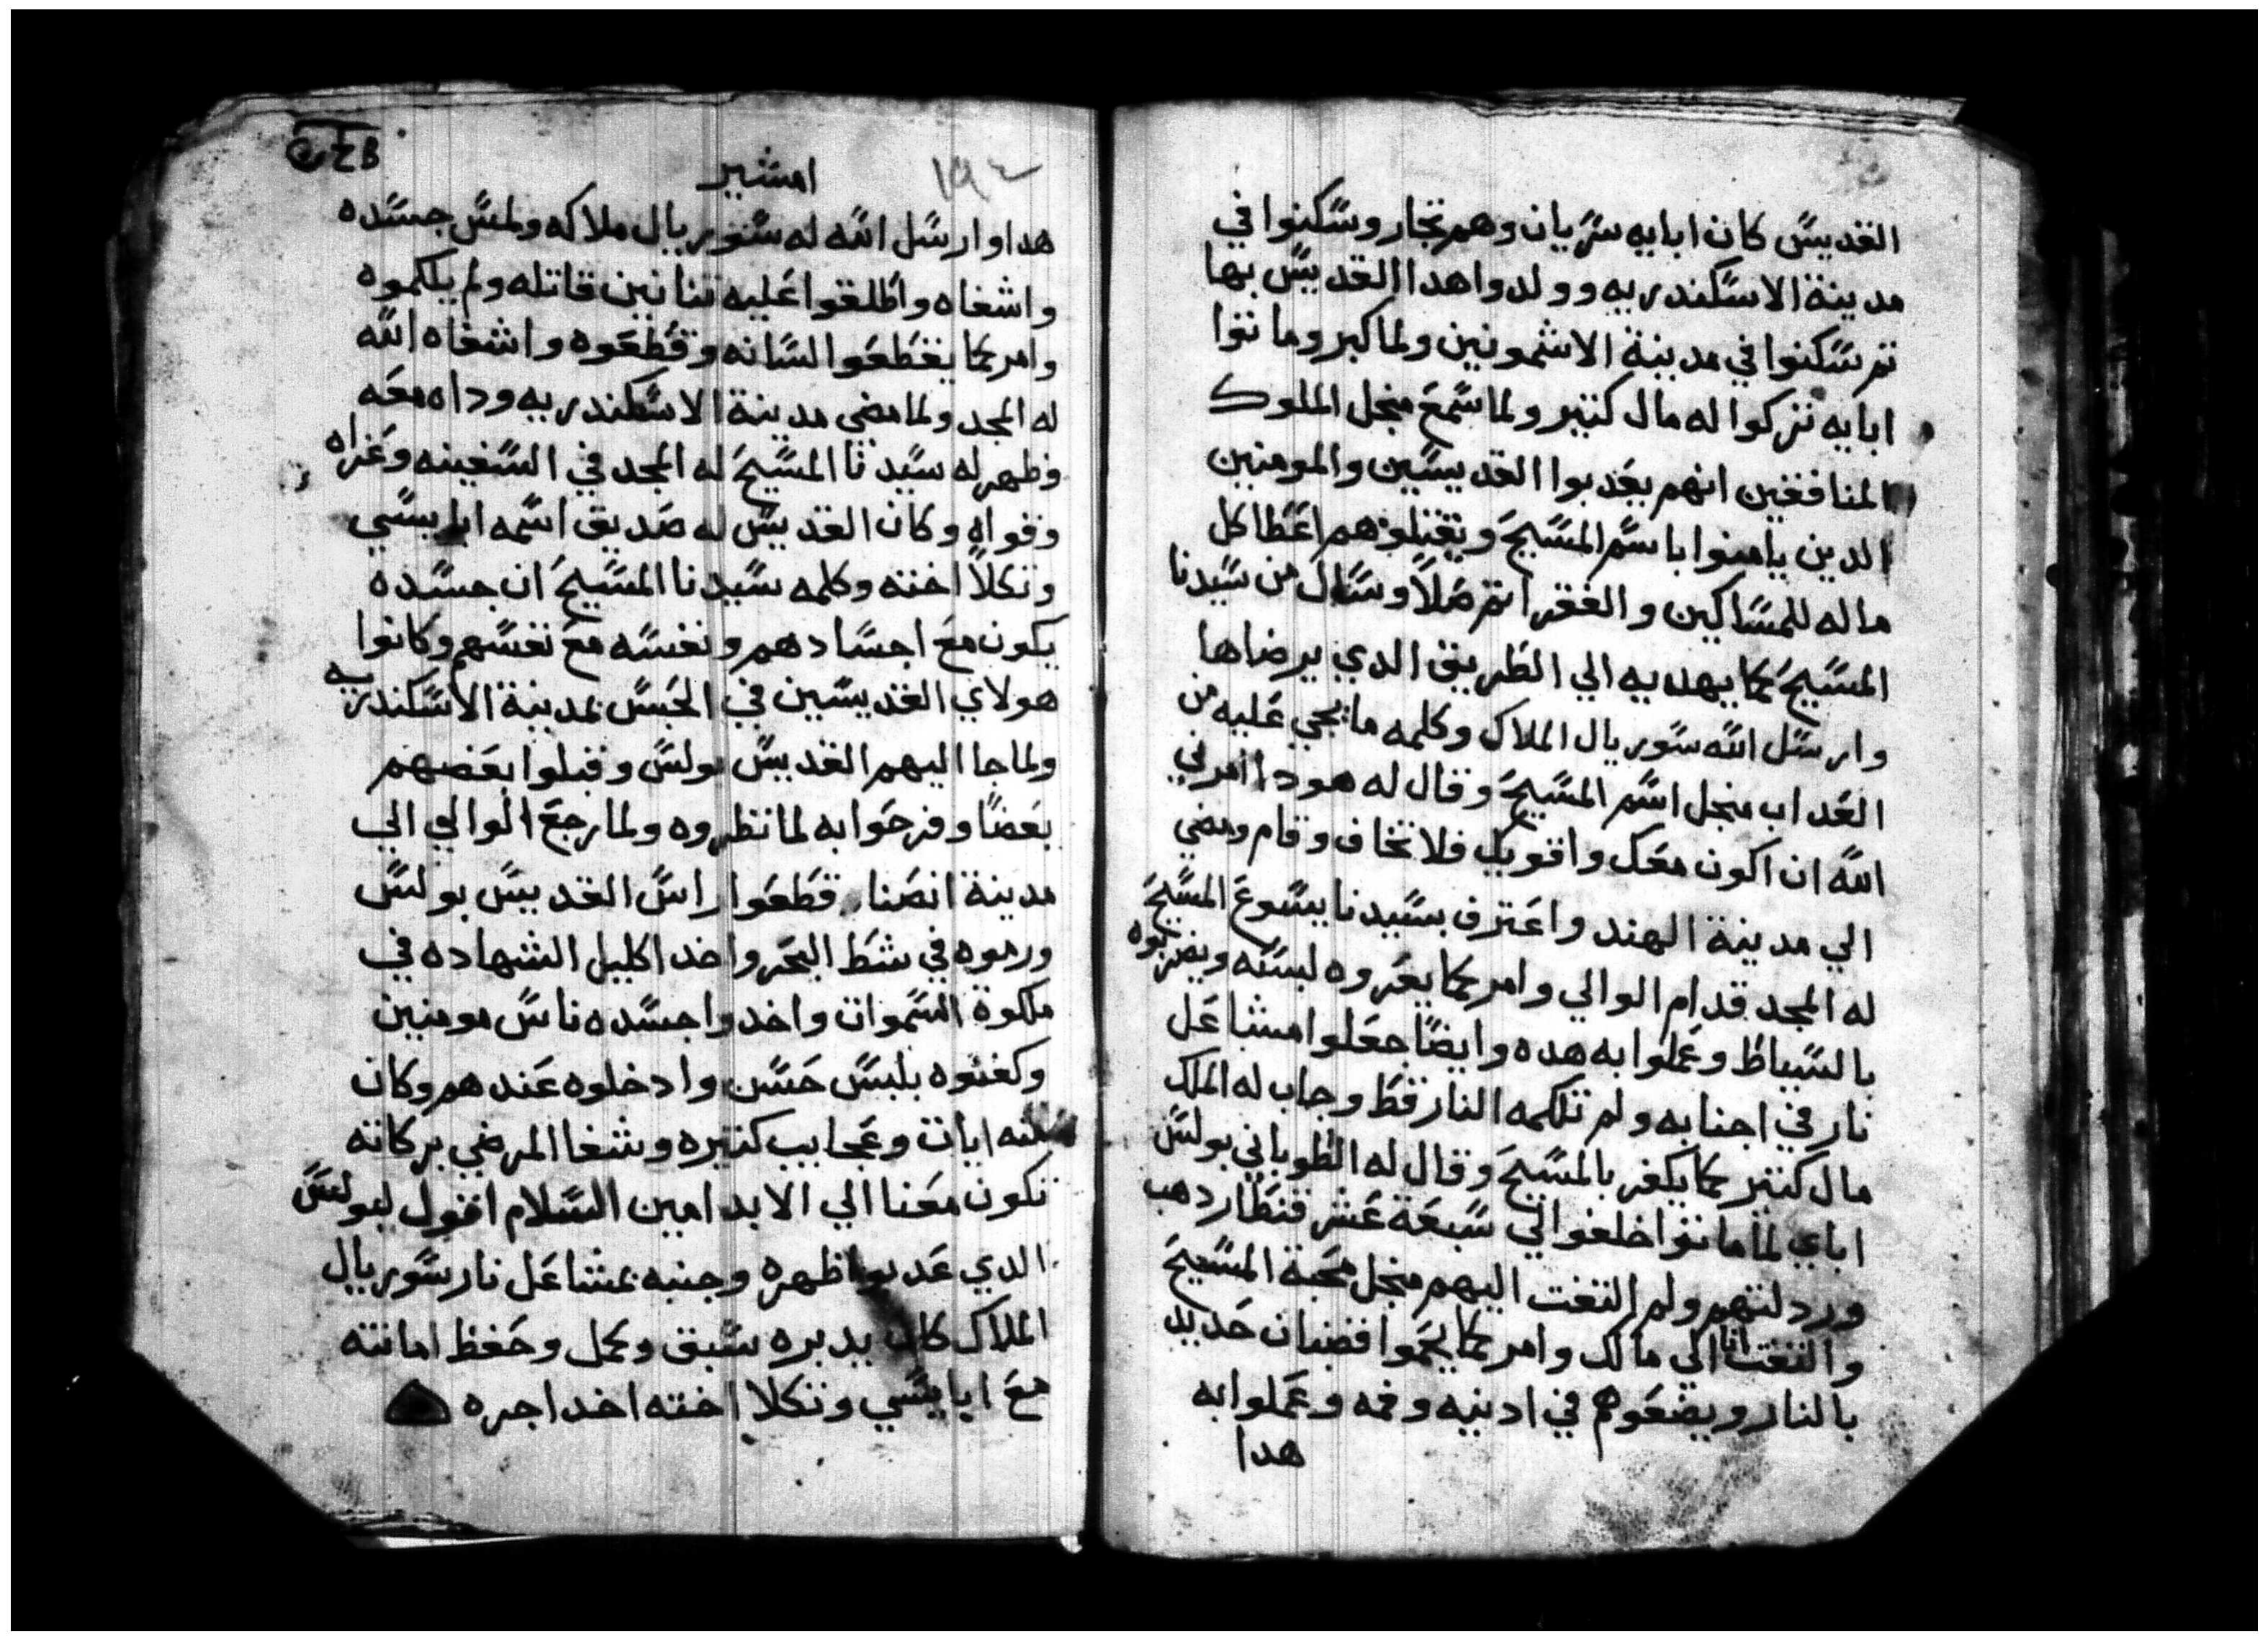 القديس كان ابايه سريان وهم تجار وسكنوا في
مدينة الاسكندريه وولدوا هدا القديس بها
تم سكنوا في مدينة الاشمونين ولما كبر وماتوا
ابايه تركوا له مال كتير ولما سمع منجل الملوك
المنافقين انهم يعدبوا القديسين والمومنين
الدين يامنوا باسم المسيح ويقتلوهم اعطا كل
ماله للمساكين والفقرا تم صلا وسال من سيدنا
المسيح كما يهديه الي الطريق الدي يرضاها
وارسل الله سوريال الملاك وكلمه ما يجي عليه من
العداب منجل اسم المسيح وقال له هودا امرني
الله ان اكون معك واقويك فلا تخاف وقام ومضي
الي مدينة الهند واعترف بسيدنا يسوع المسيح
له المجد قدام الوالي وامر كما يعروه لبسه ويضربوه
بالسياط وعملوا به هده وايضا جعلوا مشاعل
نار في اجنابه ولم تلكمه النار قط وجاب له الملك
مال كتير كما يكفر بالمسيح وقال له الطوباني بولس
اباي لما ماتوا خلفوا لي سبعة عشر قنطار دهب
ورد لتهم ولم التفت اليهم منجل محبة المسيح
والتفت انا الي مالك وامر كما يحموا قضبان حديد
بالنار ويضعوهم في ادنيه وفمه وعملوا به
هدا
امشير
١٩٤
هدا وارسل الله له سوريال ملاكه ولمس جسده
واشفاه واطلقوا عليه تنانين قاتله ولم يلكموه
وامر كما يقطعوا لسانه وقطعوه واشفاه الله
له المجد ولما مضي مدينة الاسكندريه وداه معه
وظهر له سيدنا المسيح له المجد في السفينه وعزاه
وقواه وكان القديس له صديق اسمه ابا بيسي
وتكلا اخته وكلمه سيدنا المسيح ان جسده
يكون مع اجسادهم ونفسه مع نفسهم وكانوا
هولاي القديسين في الحبس بمدينة الاسكندريه
ولما جا اليهم القديس بولس وقبلوا بعضهم
بعضا وفرحوا به لما نظروه ولما رجع الوالي الي
مدينة انصنا قطعوا راس القديس بولس
ورموه في شط البحر واخد اكليل الشهاده في
ملكوة السموات واخدوا جسده ناس مومنين
وكفنوه بلبس حسن وادخلوه عندهم وكان
منه ايات وعجايب كتيره وشفا المرضي بركاته
تكون معنا الي الابد امين السلام اقول لبولس
الدي عدبوا ظهره وجنبه بمشاعل نار سوريال
الملاك كان يدبره سبق وكمل وحفظ امانته
مع ابا بيسي وتكلا اخته اخد اجره